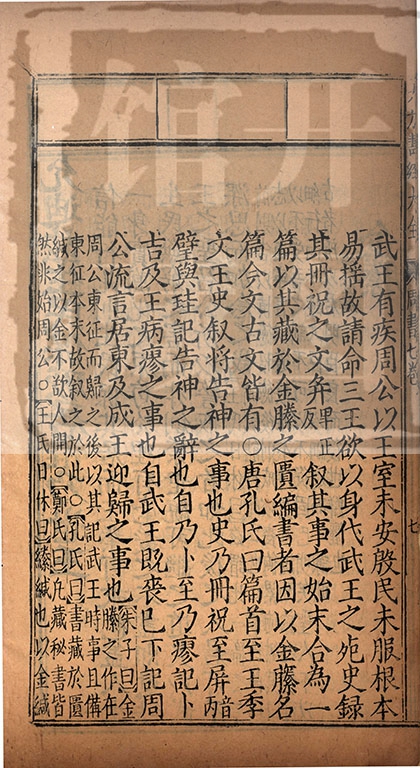 武王有疾周公以王室未安殷民未服根本
易揺故請命三王欲以身代武王之死史録
其冊祝之文并畢正反叙其事之始末合為一
篇以其藏於金縢之匱編書者因以金縢名
篇今文古文皆有○唐孔氏曰篇首至王季
文王史叙將告神之事也史乃冊祝至屏音丙
璧與珪記告神之辭也自乃卜至乃瘳記卜
吉及王病瘳之事也自武王既喪已下記周
公流言居東及成王迎歸之事也朱子曰金縢之作在
周公東征而歸之後以其記武王時事且備
東征本末故叙之於此○孔氏曰書藏於匱
緘之以金不欲人開○鄭氏曰凡藏秘書皆
然非始周公○王氏日休曰縢緘也以金緘